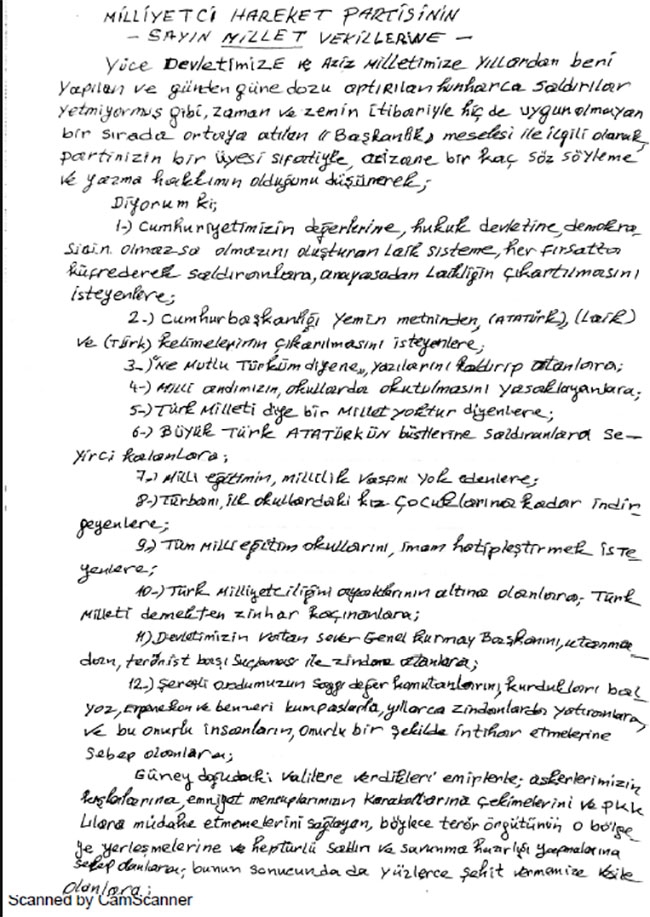 MİLLİYETCİ HAREKET PARTİSİNİN
- SAYIN MİLLET VEKİLLERİNE -
Yüce Devletimize ve Aziz Milletimize yıllardan beri
yapılan ve günden güne dozu artırılan hunharca saldırılar
yetmiyormuş gibi, zaman ve zemin itibariyle hiç de uygun olmayan
bir sırada ortaya atılan "Başkanlık" meselesi ile ilgili olarak,
partinizin bir üyesi sıfatiyle, acizane bir kaç söz söyleme
ve yazma hakkımın olduğunu düşünerek;
Diyorum ki;
1-) Cumhuriyetimizin değerlerine, hukuk devletine, demokra
sinin olmazsa olmazını oluşturan Laik sisteme, her fırsatta
küfrederek saldıranlara, anayasadan Laikliğin çıkartılmasını
isteyenlere;
2-) Cumhurbaşkanlığı yemin metninden, (ATATÜRK), (Laik)
ve (Türk) kelimelerinin çıkarılmasını isteyenlere;
3-) "Ne Mutlu Türküm diyene", yazılarını kaldırıp atanlara;
4-) Milli andımızın, okullarda okutulmasını yasaklayanlara;
5-) Türk Milleti diye bir Millet yoktur diyenlere;
6-) BÜYÜK TÜRK ATATÜRKÜN büstlerine saldıranlara se-
yirci kalanlara;
7-) Milli eğitimin, millilik vasfını yok edenlere;
8-) Türbanı, ilk okullardaki kız çocuklarına kadar indir
geyenlere;
9-) Tüm Milli eğitim okullarını, imam hatipleştirmek iste
yenlere;
10-) Türk Milliyetciliğini ayaklarının altına alanlara, Türk
Milleti demekten zinhar kaçınanlara;
11-) Devletimizin vatan sever Genel Kurmay Başkanını, utanma
dan, terörist başı suçlaması ile zindana atanlara;
12-) Şerefli ordumuzun saygı değer komutanlarını, kurdukları bal
yoz, Ergenekon ve benzeri kumpaslarla, yıllarca zindanlarda yatıranlara,
ve bu onurlu insanların, onurlu bir şekilde intihar etmelerine
sebep olanlara;
Güney doğudaki valilere verdikleri emirlerle; askerlerimizin
kışlalarına, emniyet mensuplarımızın karakollarına çekimelerini ve PKK
Lılara müdahe etmemelerini sağlayan, böylece terör örgütünün o bölge
ye yerleşmelerine ve hertürlü saldırı ve savunma hazırlığı yapmalarına
sebep olanlara; bunun sonucunda da yüzlerce şehit vermemize vesile
olanlara;
Scanned by CamScanner